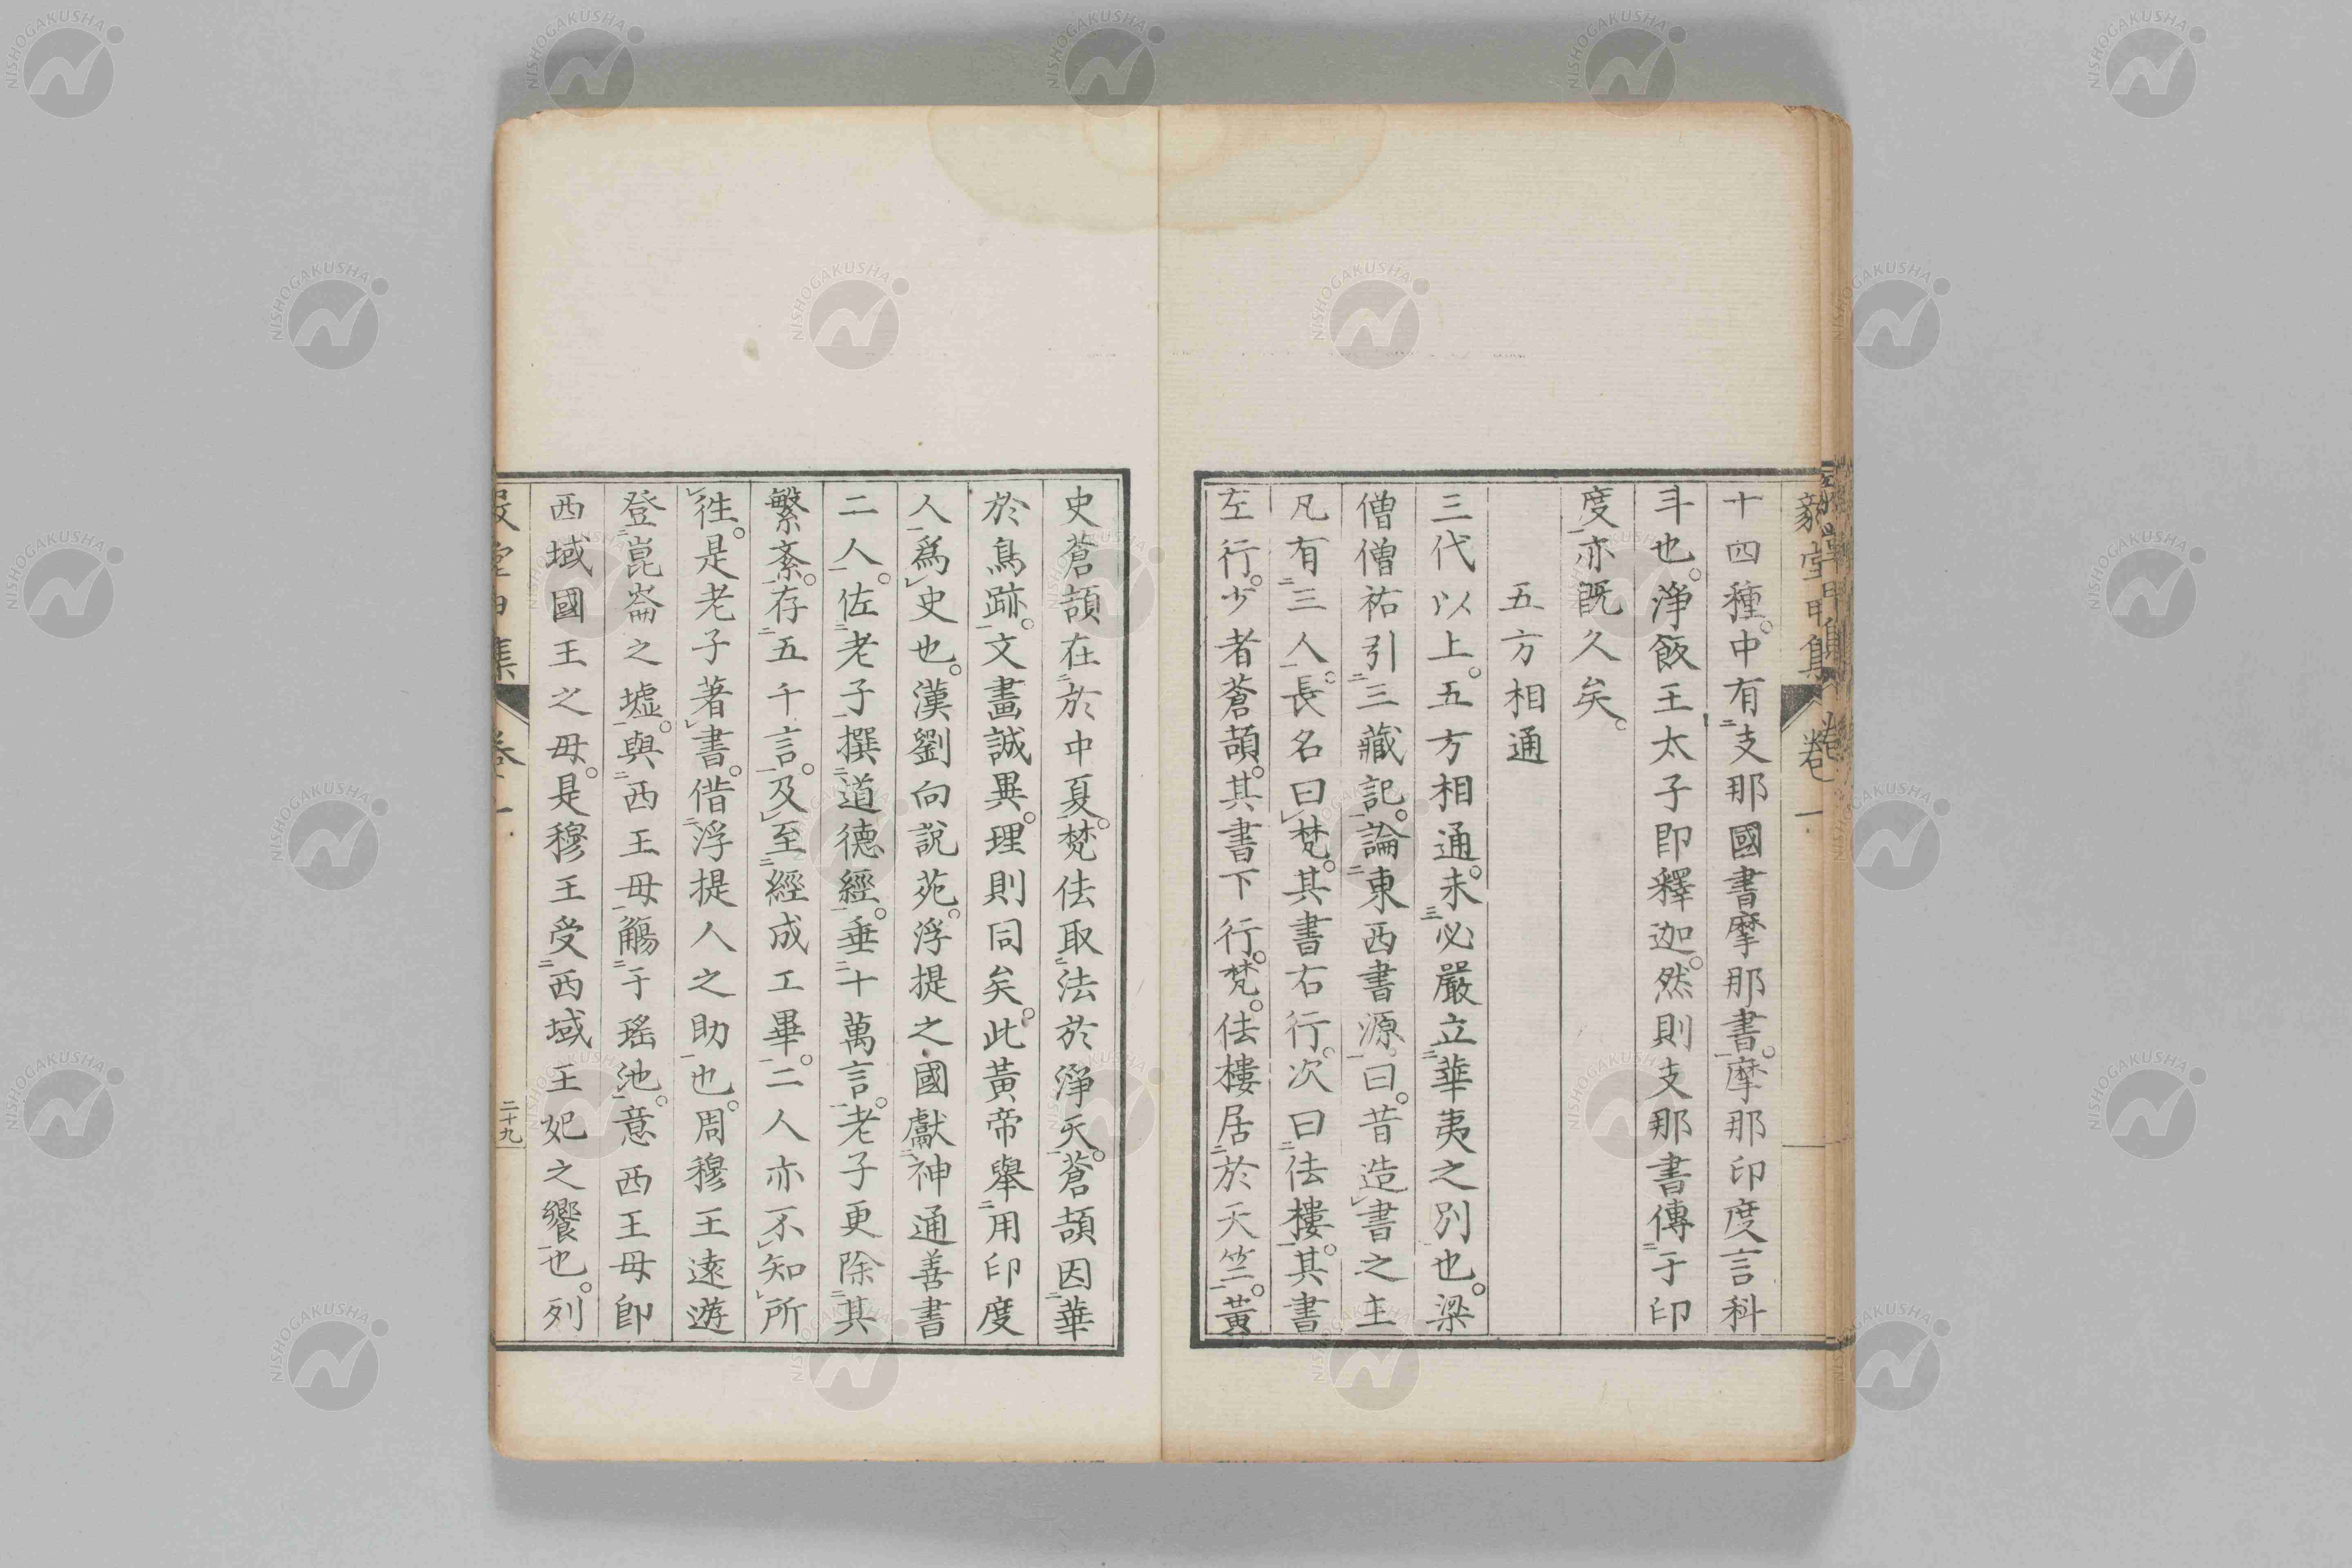 毅堂甲集 卷一
十四種。中有支那國書摩那書。摩那印度言科
斗也。淨飯王太子即釋迦。然則支那書傳于印
度亦既久矣。
五方相通
三代以上。五方相通。未必嚴立華夷之別也。梁
僧僧祐引三藏記。論東西書源曰。昔造書之主
凡有三人。長名曰梵。其書右行。次曰佉樓。其書
左行。少者蒼頡。其書下行。梵。佉樓居於天竺。黃
史蒼頡在於中夏。梵佉取法於淨天。蒼頡因華
於鳥跡。文畫誠異。理則同矣。此黃帝舉用印度
人爲史也。漢劉向說苑。浮提之國獻神通善書
二人。佐老子撰道德經。垂十萬言。老子更除其
繁紊。存五千言。及至經成工畢。二人亦不知所
徃。是老子著書。偕浮提人之助也。周穆王遠遊
登崑崙之墟。與西王母觴于瑤池。意西王母卽
西域國王之母。是穆王受西域王妃之饗也。列
堂甲集 卷一
二十九
NISHOGAKUSHA